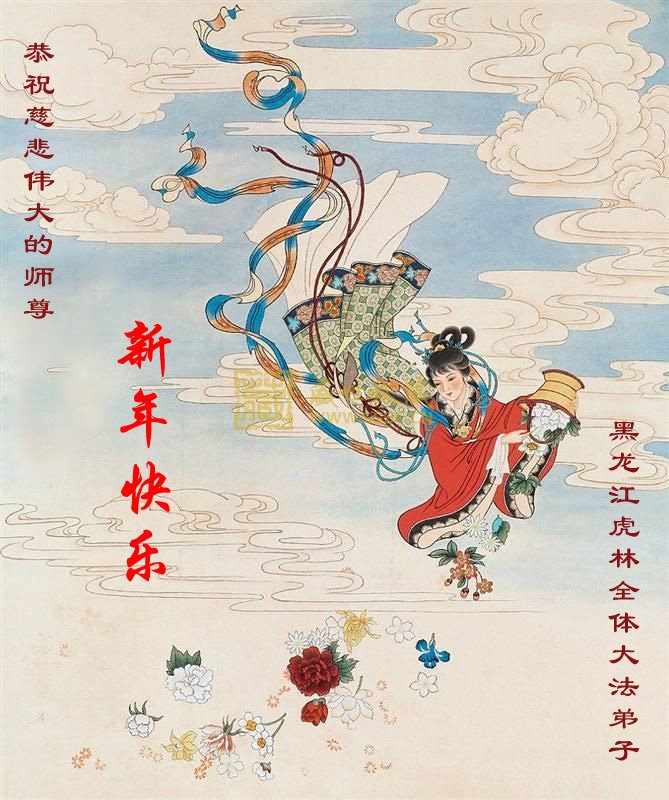 恭祝慈悲伟大的师尊
新年快乐
黑龙江虎林全体大法弟子